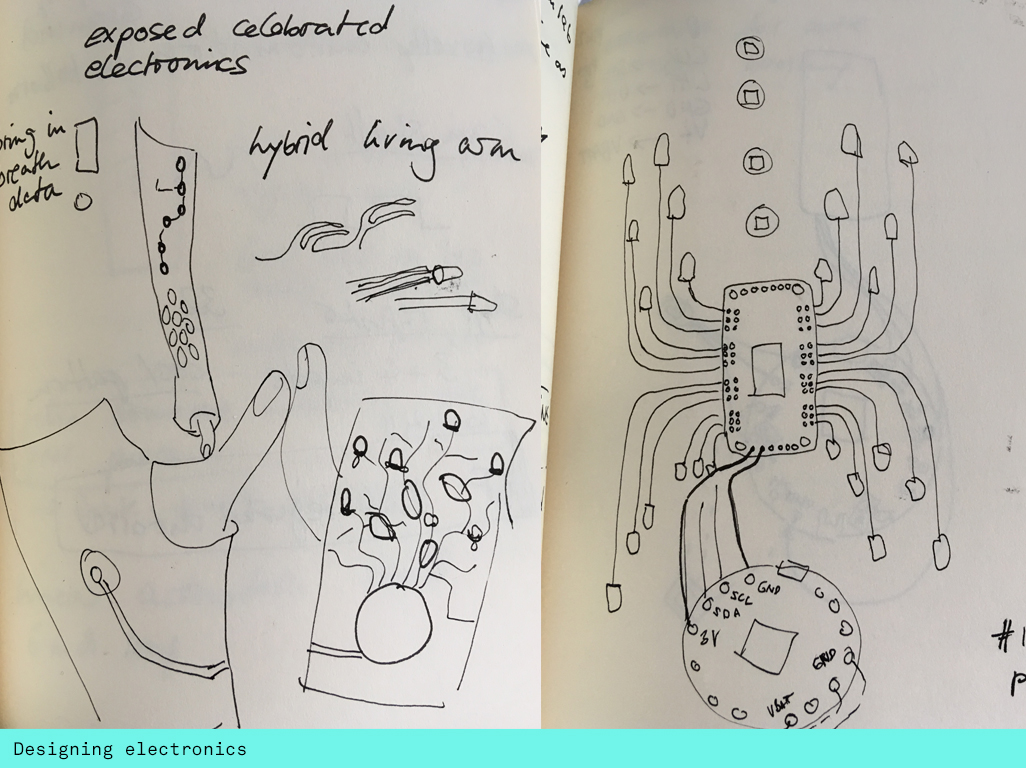 exposed celebrated
electronics
bring in
breath
data
hybrid living arm
GND
SCL
SDA
3V
GND
VBAT
#1
Designing electronics